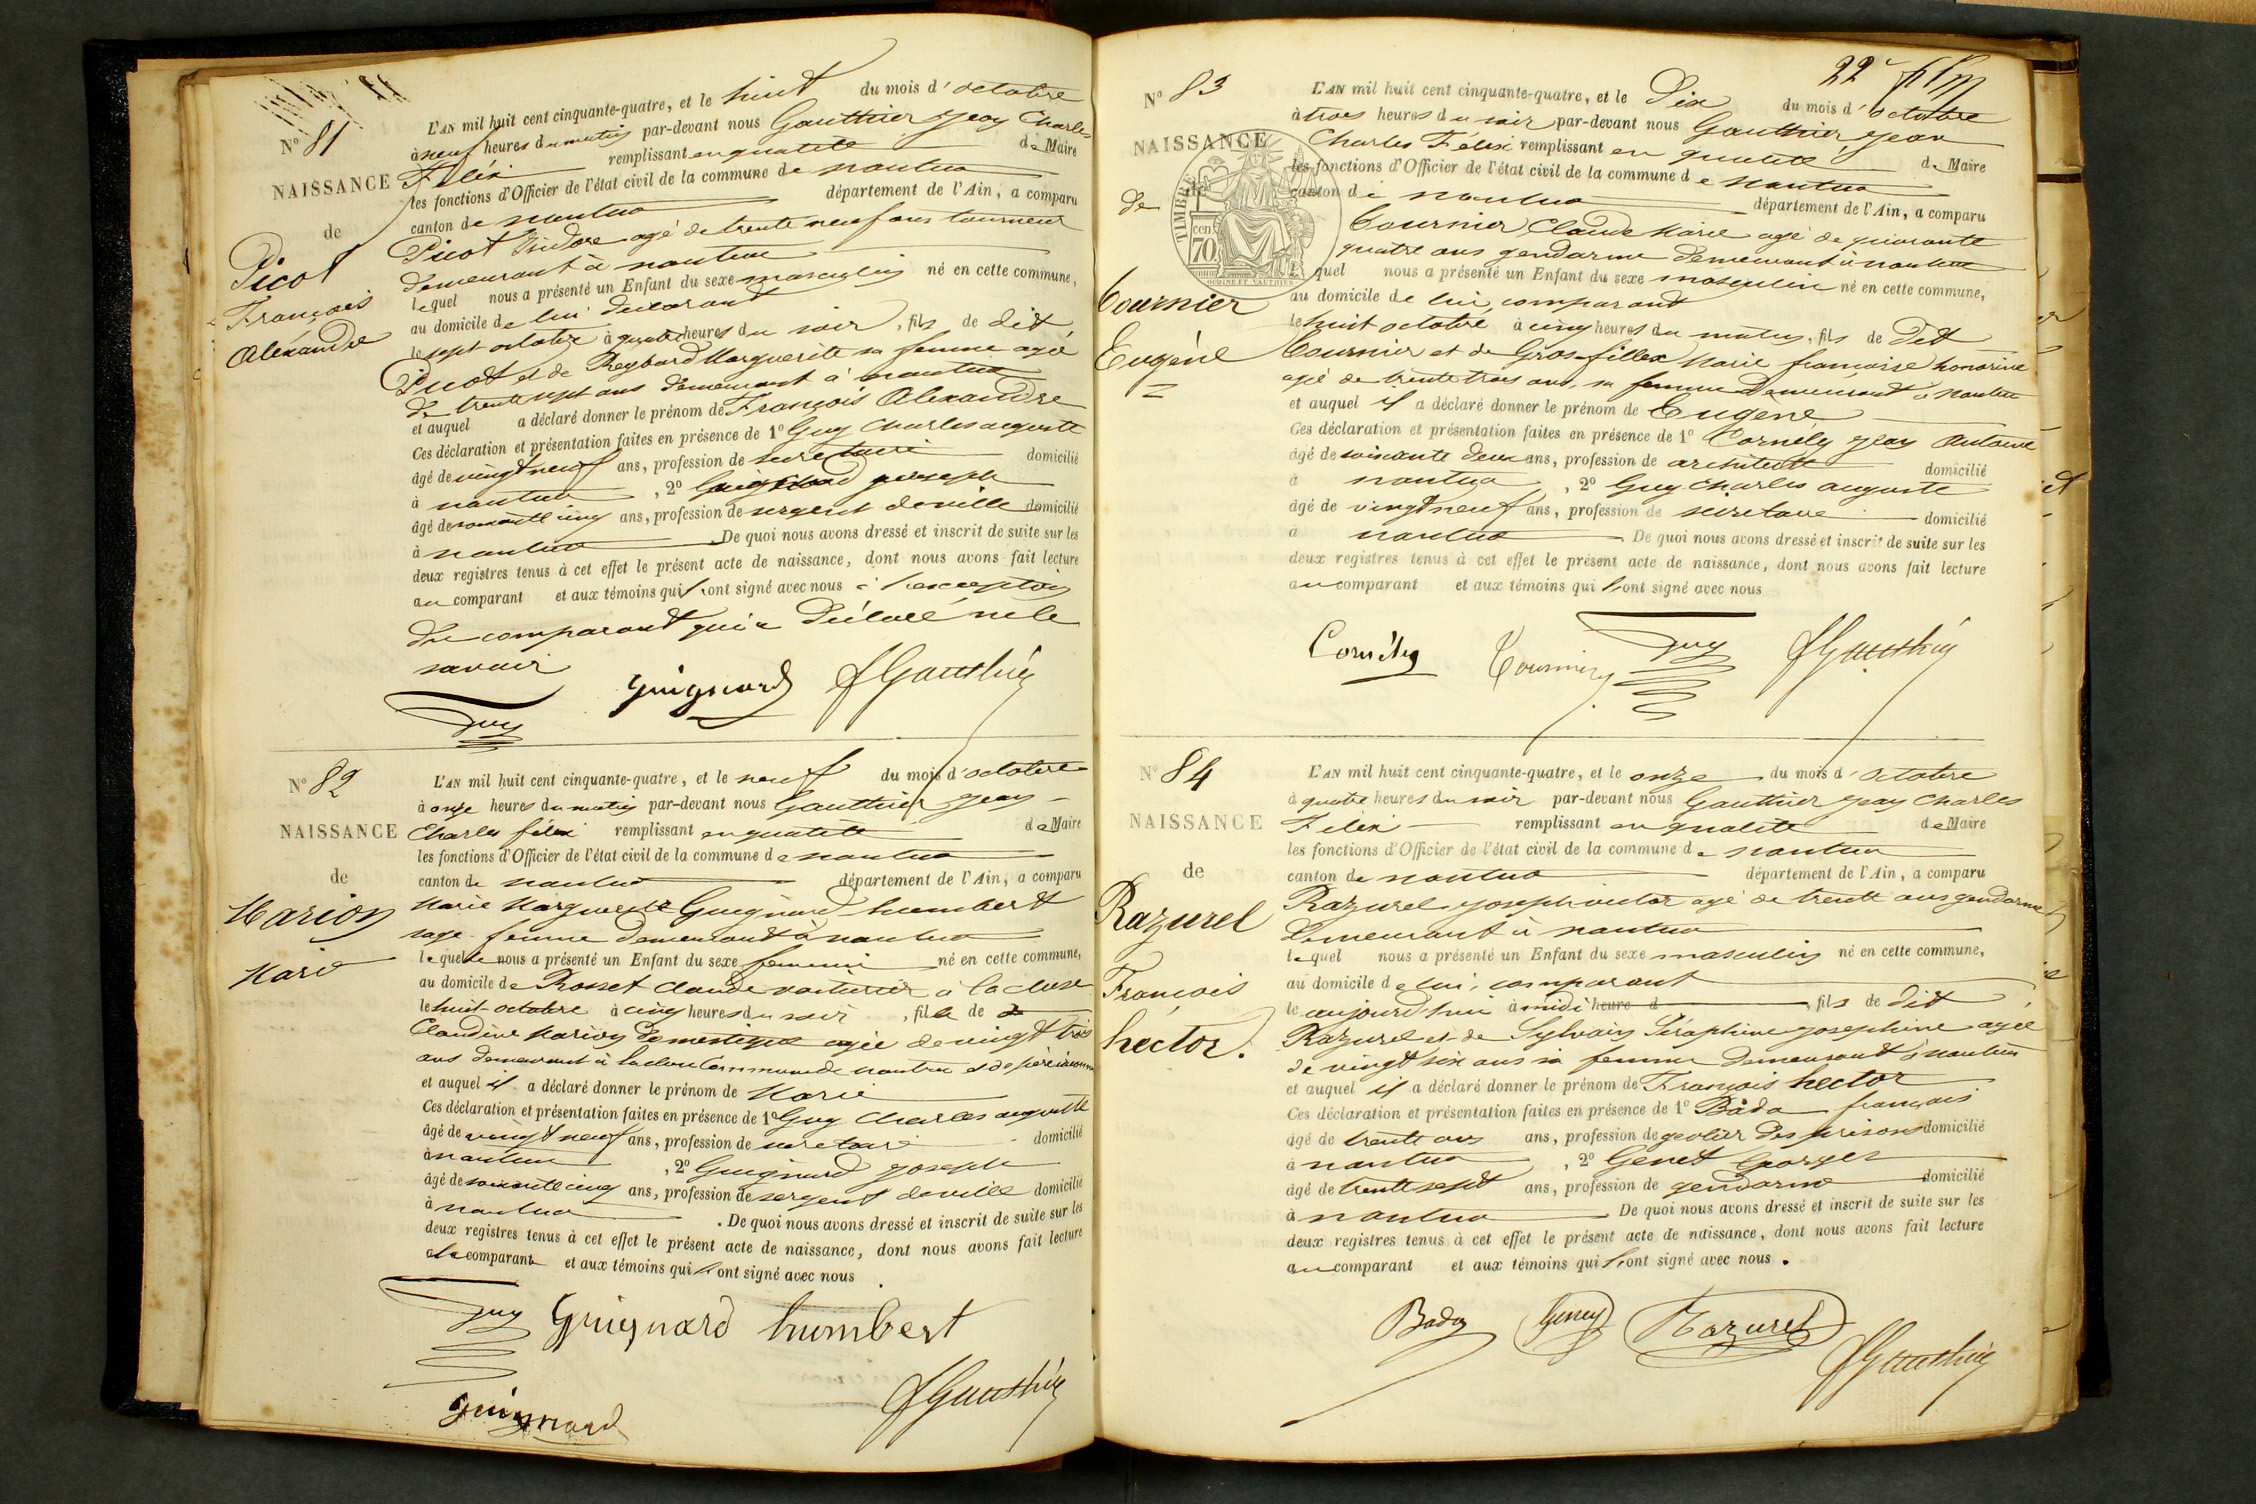 N° 81
NAISSANCE
de
Picot
François
Alexandre
L'AN mil huit cent cinquante-quatre, et le huit du mois d'octobre
à neuf heures du matin par-devant nous Gauthier Jean Charles
Félix remplissant en qualité de Maire
les fonctions d'Officier de l'état civil de la commune de nantua
canton de nantua département de l'Ain, a comparu
Picot Isidore agé de trente neuf ans tourneur
demeurant à nantua
lequel nous a présenté un Enfant du sexe masculin né en cette commune,
au domicile de lui déclarant
le sept octobre à quatre heures du soir, fils de dit
Picot et de Reybard Marguerite sa femme agée
de trente sept ans demeurant à nantua
et auquel a déclaré donner le prénom de François Alexandre
Ces déclaration et présentation faites en présence de 1° Guy Charles auguste
âgé de vingt neuf ans, profession de secretaire domicilié
à nantua, 2° Guignard joseph
âgé de soixante cinq ans, profession de sergent de ville domicilié
à nantua De quoi nous avons dressé et inscrit de suite sur les
deux registres tenus à cet effet le présent acte de naissance, dont nous avons fait lecture
au comparant et aux témoins qui l'ont signé avec nous à l'exception
du comparant qui a déclaré ne le
savoir
Guignard JGauthier
Guy
N° 82
NAISSANCE
de
Marion
Marie
L'AN mil huit cent cinquante-quatre, et le neuf du mois d'octobre
à onze heures du matin par-devant nous Gauthier Jean
Charles félix remplissant en qualité de Maire
les fonctions d'Officier de l'état civil de la commune de nantua
canton de nantua département de l'Ain, a comparu
Marie Marguerite Guignard humbert
sage femme demeurant à nantua
lequelle nous a présenté un Enfant du sexe feminin né en cette commune,
au domicile de Rosset Claude voiturier à la cluse
le huit octobre à cinq heures du soir, fille de
Claudine Marion domestique agée de vingt trois
ans demeurant à la cluse Commune de nantua et de père inconnu
et auquel il a déclaré donner le prénom de Marie
Ces déclaration et présentation faites en présence de 1° Guy Charles auguste
âgé de vingt neuf ans, profession de secretaire domicilié
à nantua, 2° Guignard joseph
âgé de soixante cinq ans, profession de sergent de ville domicilié
à nantua. De quoi nous avons dressé et inscrit de suite sur les
deux registres tenus à cet effet le présent acte de naissance, dont nous avons fait lecture
à la comparante et aux témoins qui l'ont signé avec nous.
Guy Guignard humbert
JGauthier
Guignard
22e
N° 83
NAISSANCE
de
Tournier
Eugéne
TIMBRE
cen
70
L'AN mil huit cent cinquante-quatre, et le Dix du mois d'octobre
à trois heures du soir par-devant nous Gauthier Jean
Charles Félix remplissant en qualité de Maire
les fonctions d'Officier de l'état civil de la commune de nantua
canton de nantua département de l'Ain, a comparu
Tournier Claude Marie agé de quarante
quatre ans gendarme demeurant à nantua
lequel nous a présenté un Enfant du sexe masculin né en cette commune,
au domicile de lui comparant
le huit octobre à cinq heures du matin, fils de Dit
Tournier et de Gros-fillex Marie françoise honorine
agée de trente trois ans, sa femme Demeurant à nantua
et auquel il a déclaré donner le prénom de Eugene
Ces déclaration et présentation faites en présence de 1° Cornély Jean Antoine
âgé de soixante deux ans, profession de architecte domicilié
à nantua, 2° Guy Charles auguste
âgé de vingt neuf ans, profession de secretaire domicilié
à nantua De quoi nous avons dressé et inscrit de suite sur les
deux registres tenus à cet effet le présent acte de naissance, dont nous avons fait lecture
au comparant et aux témoins qui l'ont signé avec nous
Cornély Tournier Guy JGauthier
N° 84
NAISSANCE
de
Razurel
François
hector.
L'AN mil huit cent cinquante-quatre, et le onze du mois d'octobre
à quatre heures du soir par-devant nous Gauthier Jean Charles
Félix remplissant en qualité de Maire
les fonctions d'Officier de l'état civil de la commune de nantua
canton de nantua département de l'Ain, a comparu
Razurel joseph victor agé de trente ans gendarme
demeurant à nantua
lequel nous a présenté un Enfant du sexe masculin né en cette commune,
au domicile de lui, comparant
le aujourd'hui à midi heure d, fils de dit
Razurel et de Sylvain Séraphine josephine agée
de vingt six ans sa femme demeurant à nantua
et auquel il a déclaré donner le prénom de François hector
Ces déclaration et présentation faites en présence de 1° Bada françois
âgé de trente ans ans, profession de geolier des prisons domicilié
à nantua, 2° Genet Georges
âgé de trente sept ans, profession de gendarme domicilié
à nantua De quoi nous avons dressé et inscrit de suite sur les
deux registres tenus à cet effet le présent acte de naissance, dont nous avons fait lecture
au comparant et aux témoins qui l'ont signé avec nous.
Bada Genet Razurel
JGauthier